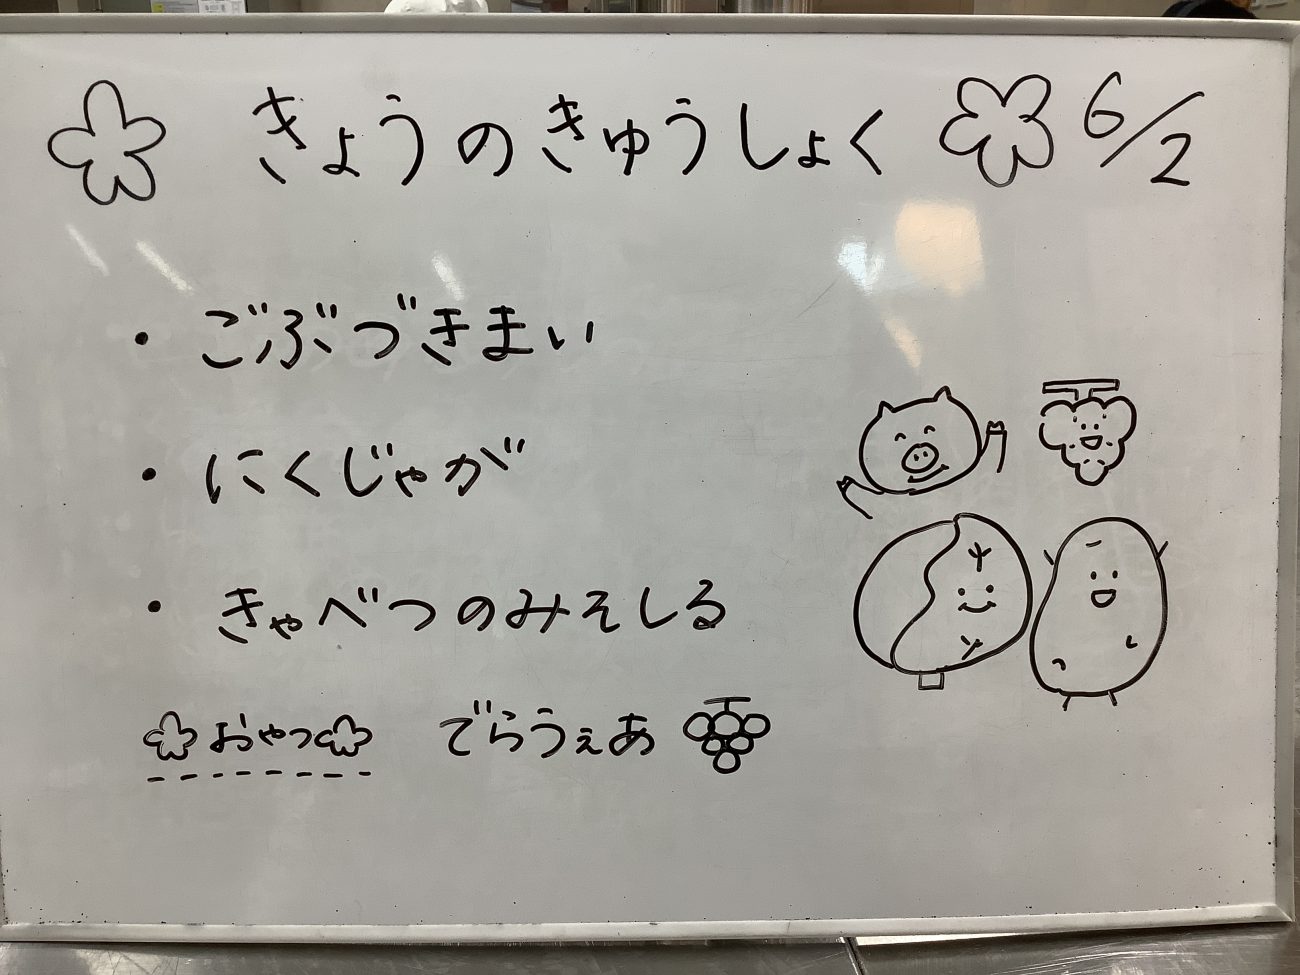 きょうのきゅうしょく 6/2
・ごぶづきまい
・にくじゃが
・きゃべつのみそしる
おやつ でらうぇあ